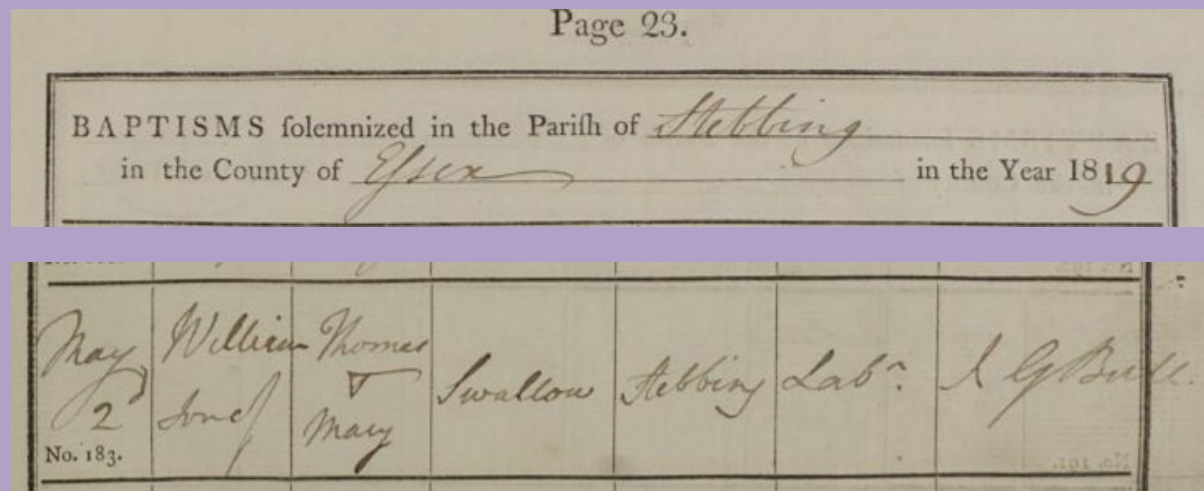 Page 23.
BAPTISMS ſolemnized in the Pariſh of Stebbing
in the County of Eſsex in the Year 1819
May 2
No. 183.
William
Son of
Thomas
&
Mary
Swallow
Stebbing
Labr.
J G Bull.